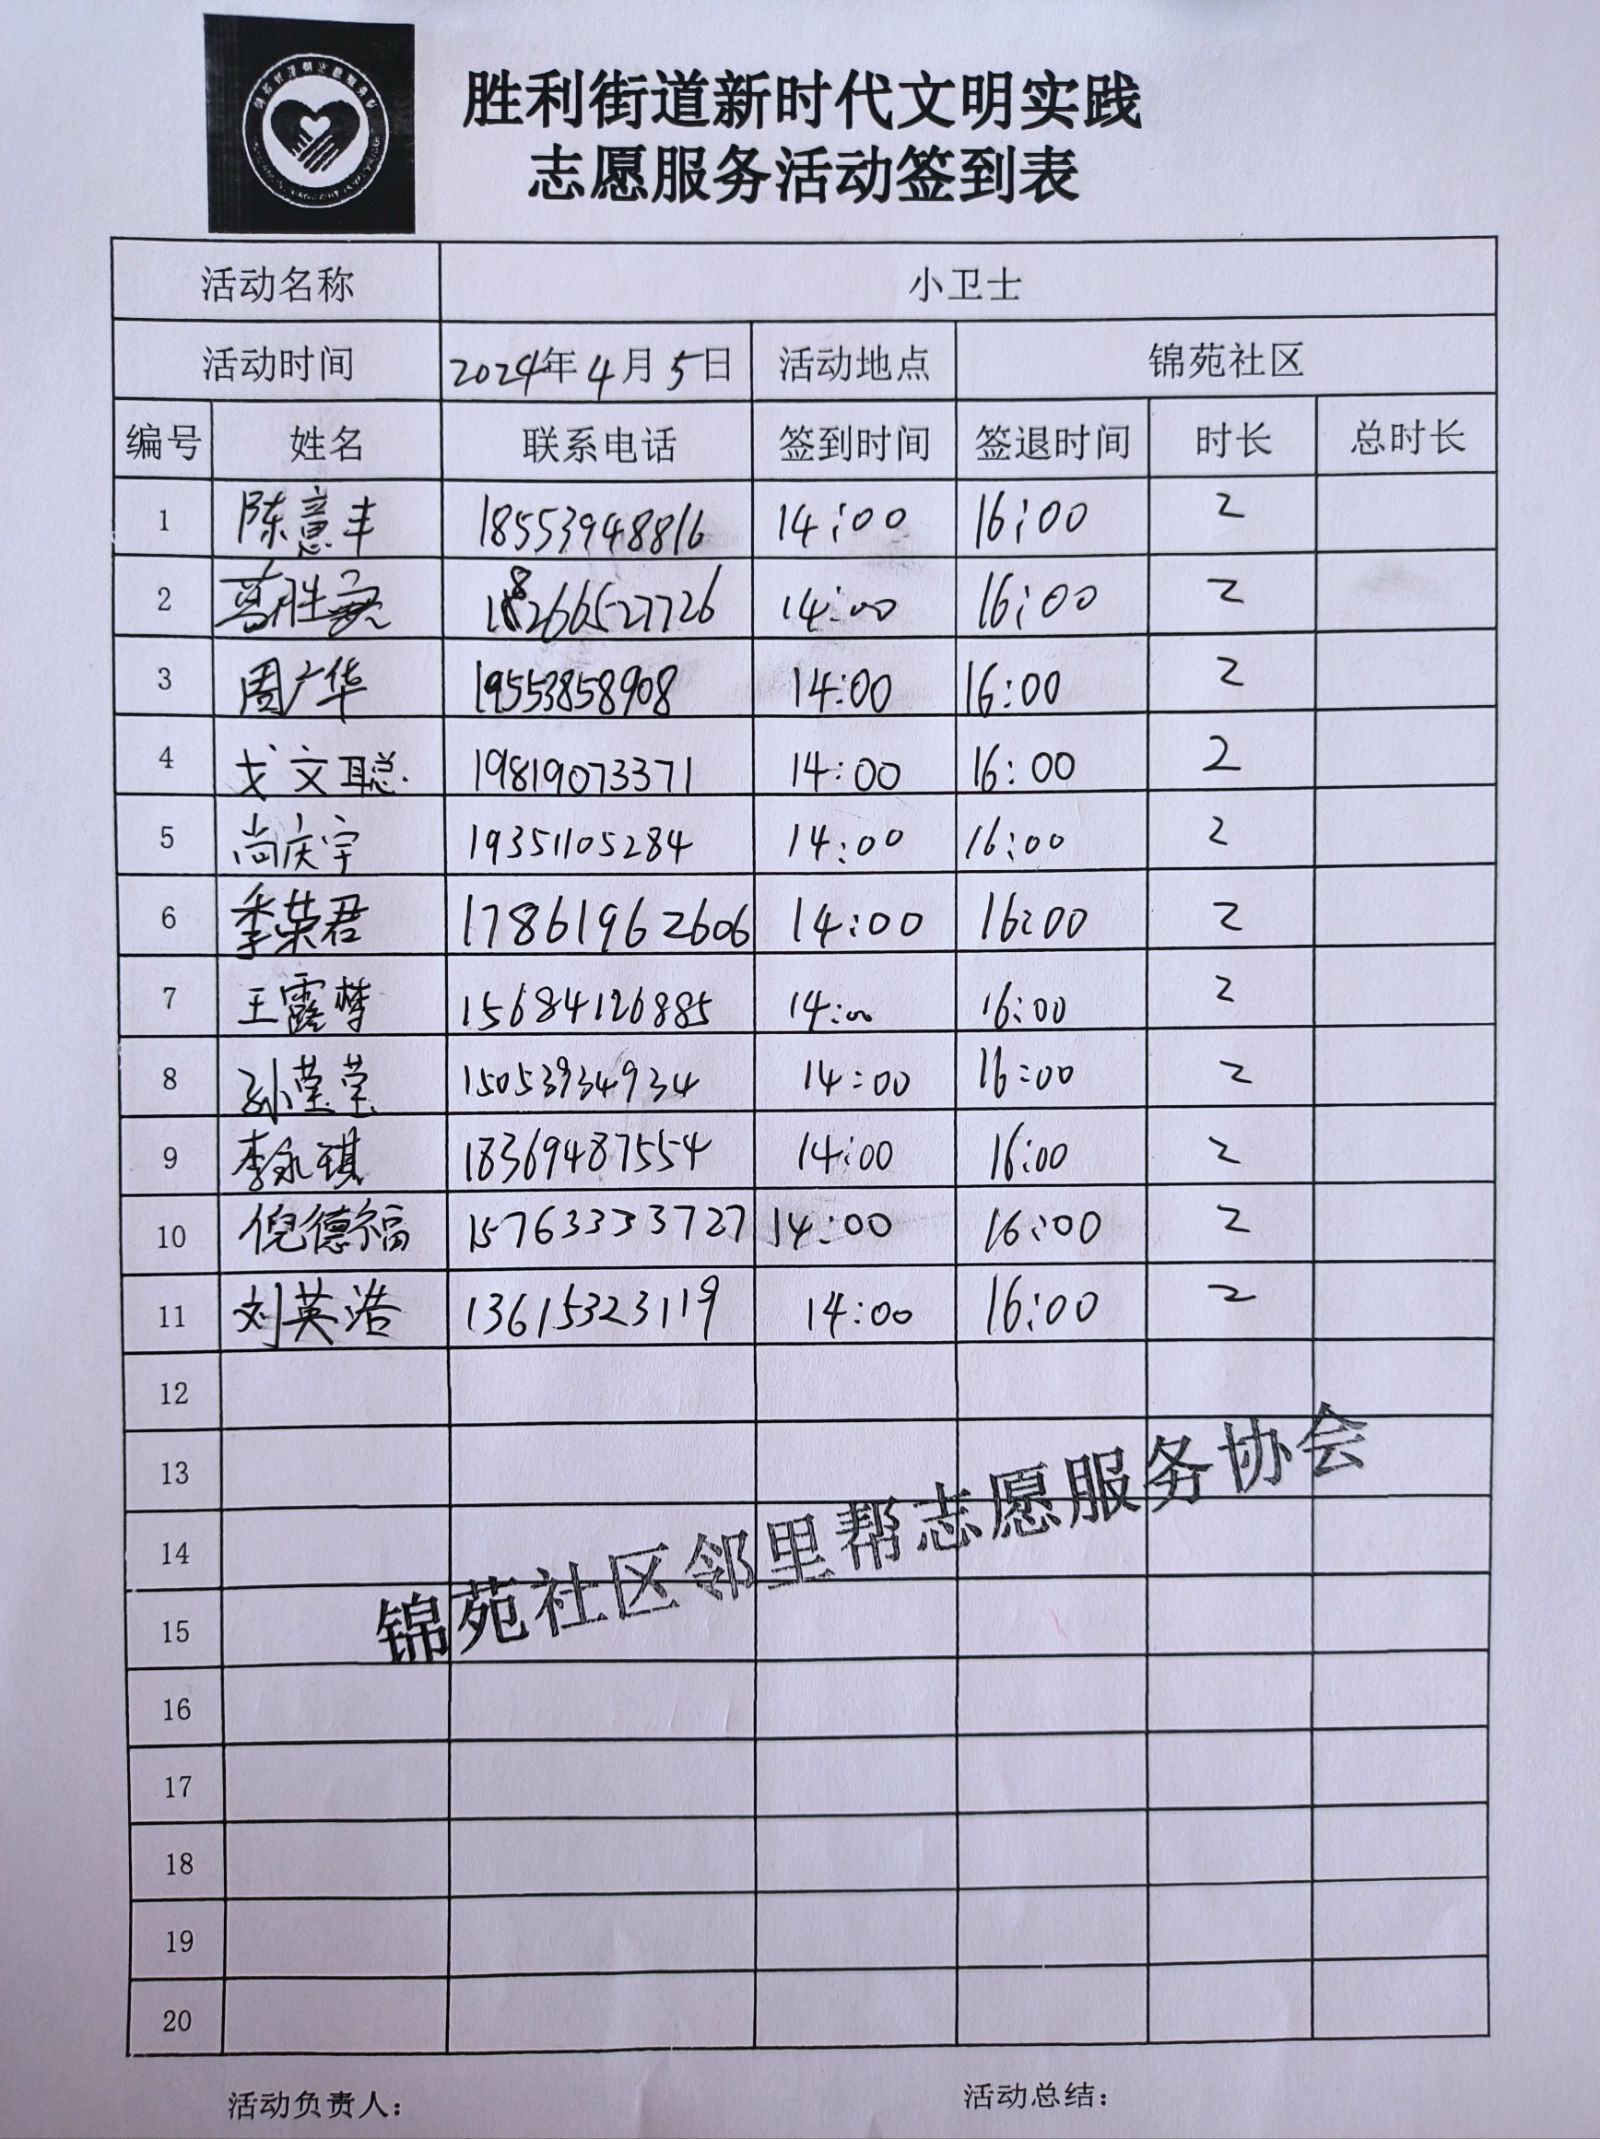 胜利街道新时代文明实践
志愿服务活动签到表
活动名称 小卫士
活动时间 2024年4月5日 活动地点 锦苑社区
编号 姓名 联系电话 签到时间 签退时间 时长 总时长
1 陈意丰 18553948816 14:00 16:00 2
2 葛胜 18266527726 14:00 16:00 2
3 周广华 19553858908 14:00 16:00 2
4 戈文聪 19819073371 14:00 16:00 2
5 尚庆宇 19351105284 14:00 16:00 2
6 季荣君 17861962606 14:00 16:00 2
7 王露梦 15684126885 14:00 16:00 2
8 孙莹莹 15053934934 14:00 16:00 2
9 李永琪 18369487554 14:00 16:00 2
10 倪德福 15763333727 14:00 16:00 2
11 刘英浩 13615323119 14:00 16:00 2
12
13
14
15
锦苑社区邻里帮志愿服务协会
16
17
18
19
20
活动负责人: 活动总结: